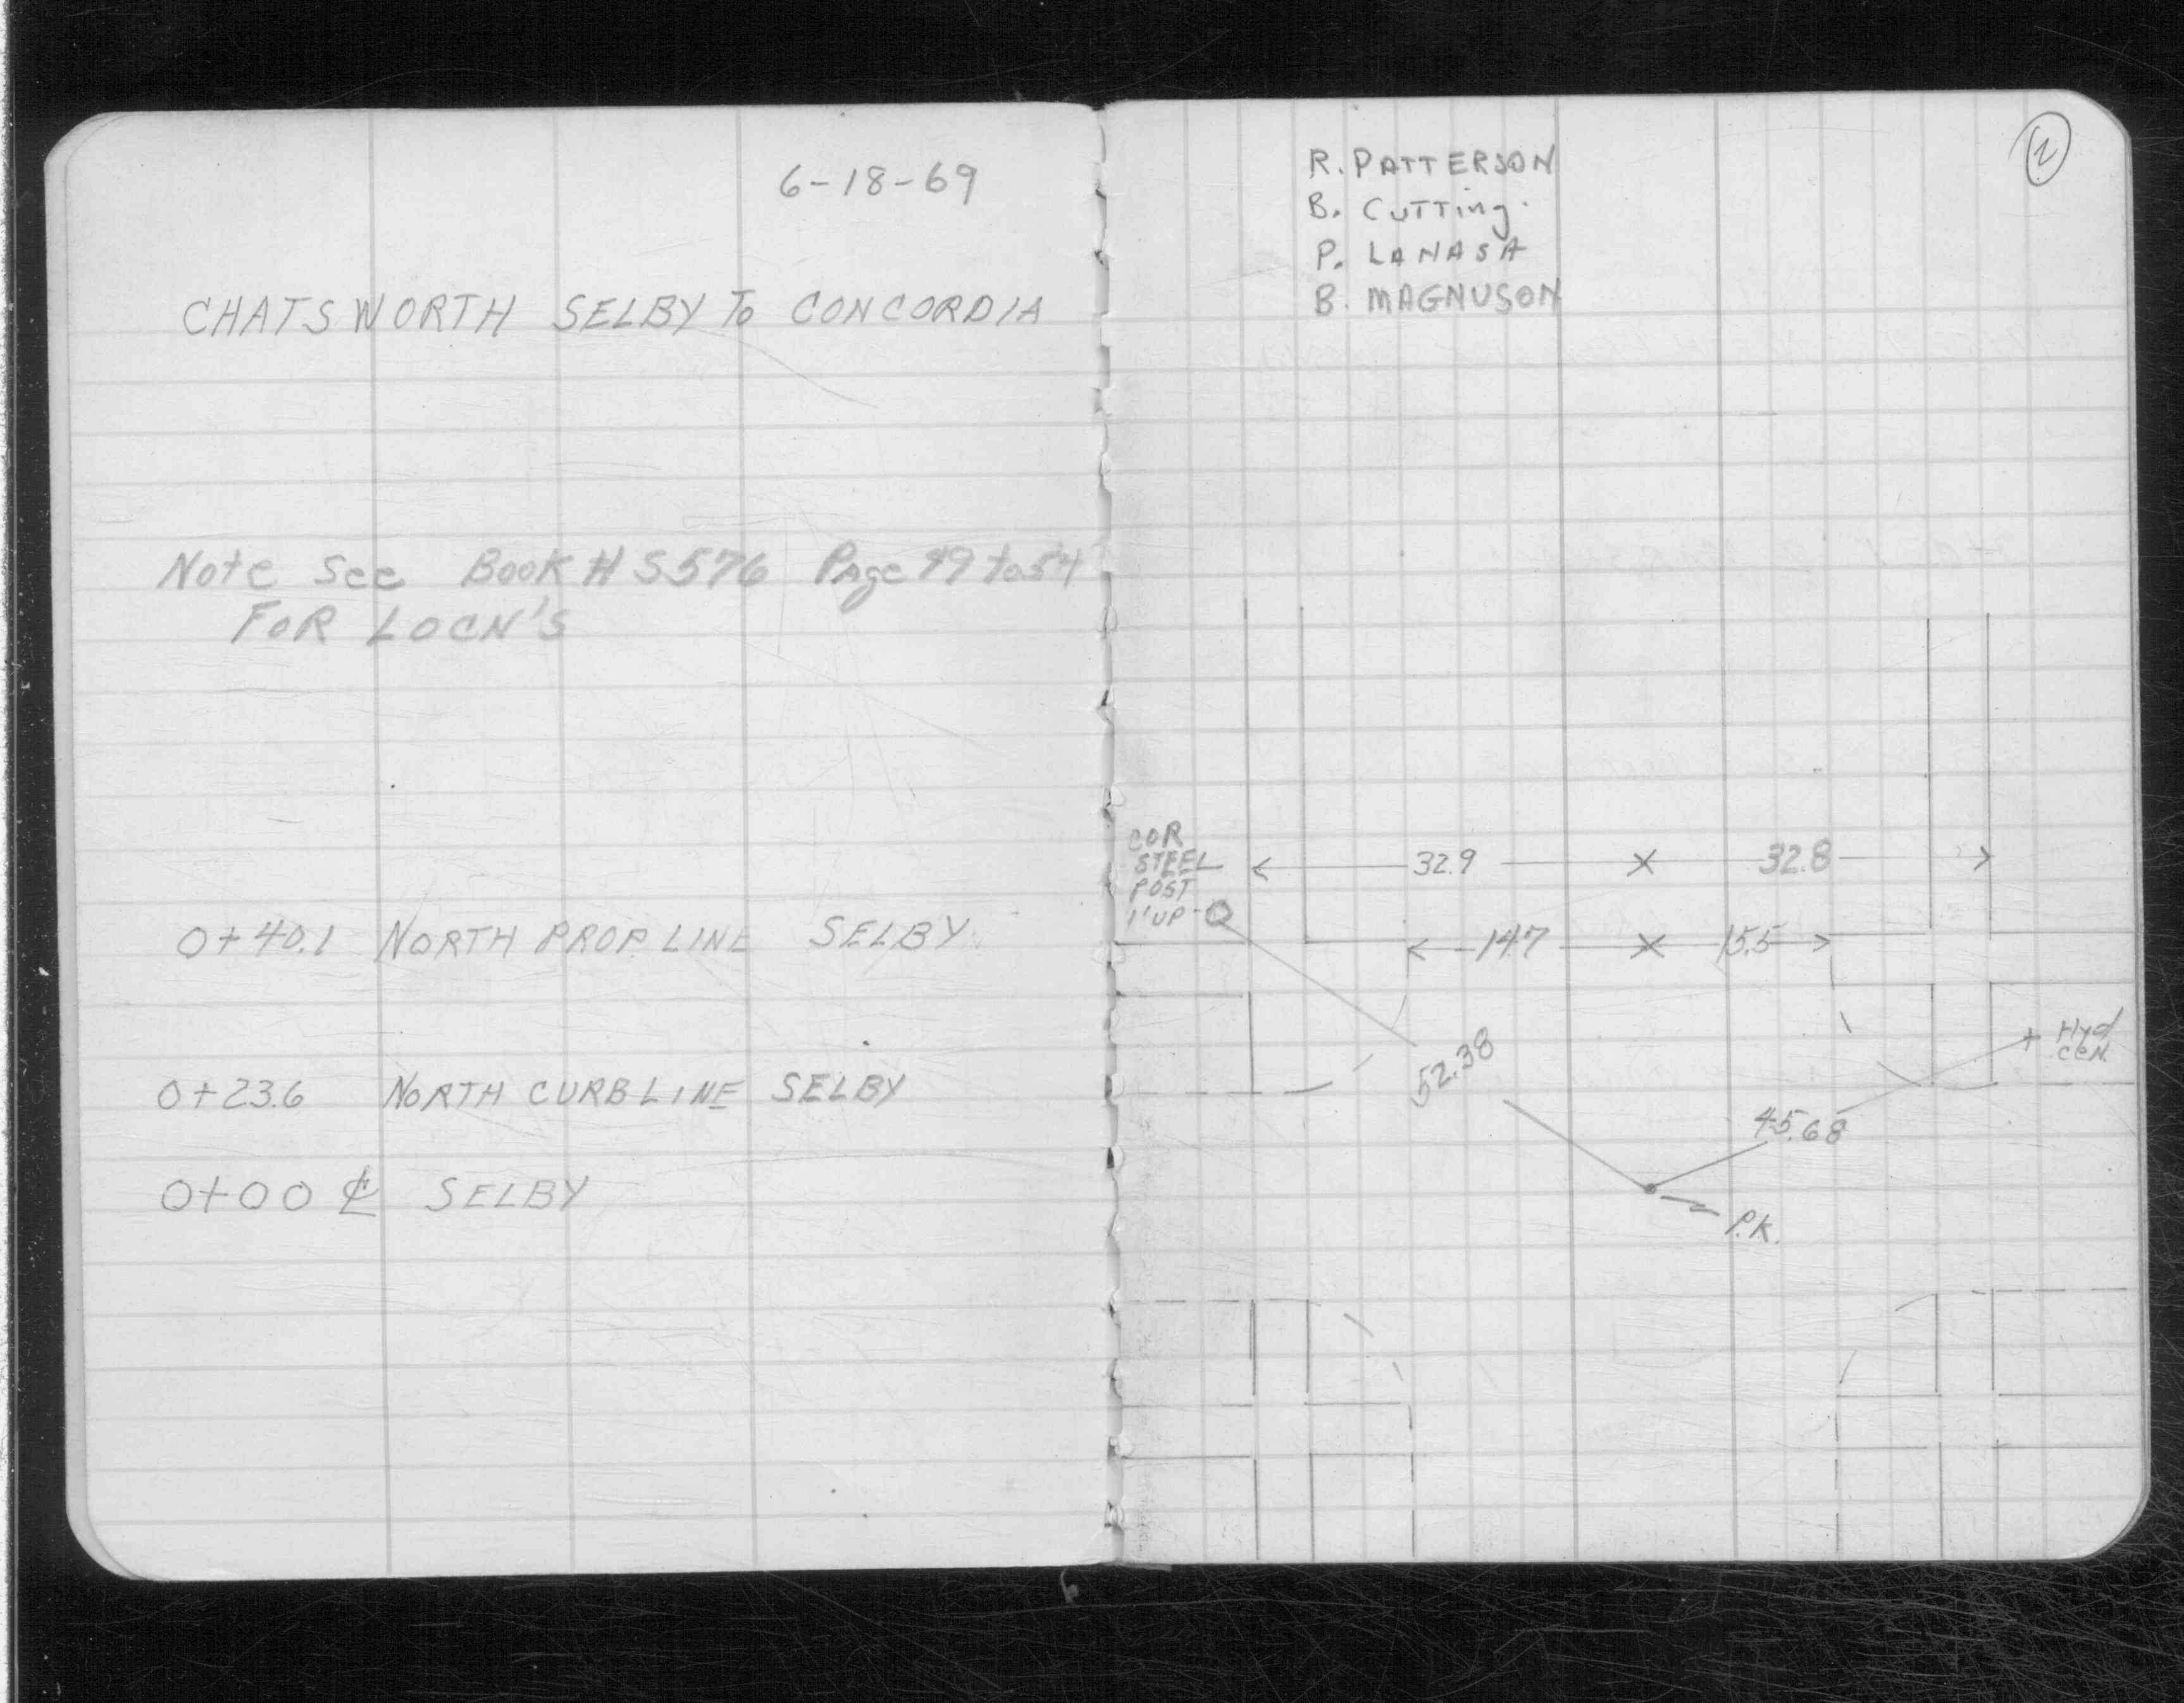 6-18-69
CHATSWORTH SELBY To CONCORDIA
Note See Book # 5576 Page 49 to 54
FOR LOCN'S
0+40.1 NORTH PROP LINE SELBY
0+23.6 NORTH CURB LINE SELBY
0+00 ℄ SELBY
R. PATTERSON
B. CUTTing.
P. LANASA
B. MAGNUSON
COR
STEEL
POST
1' UP
32.9
32.8
14.7
15.5
52.38
Hyd
cen.
45.68
P.K.